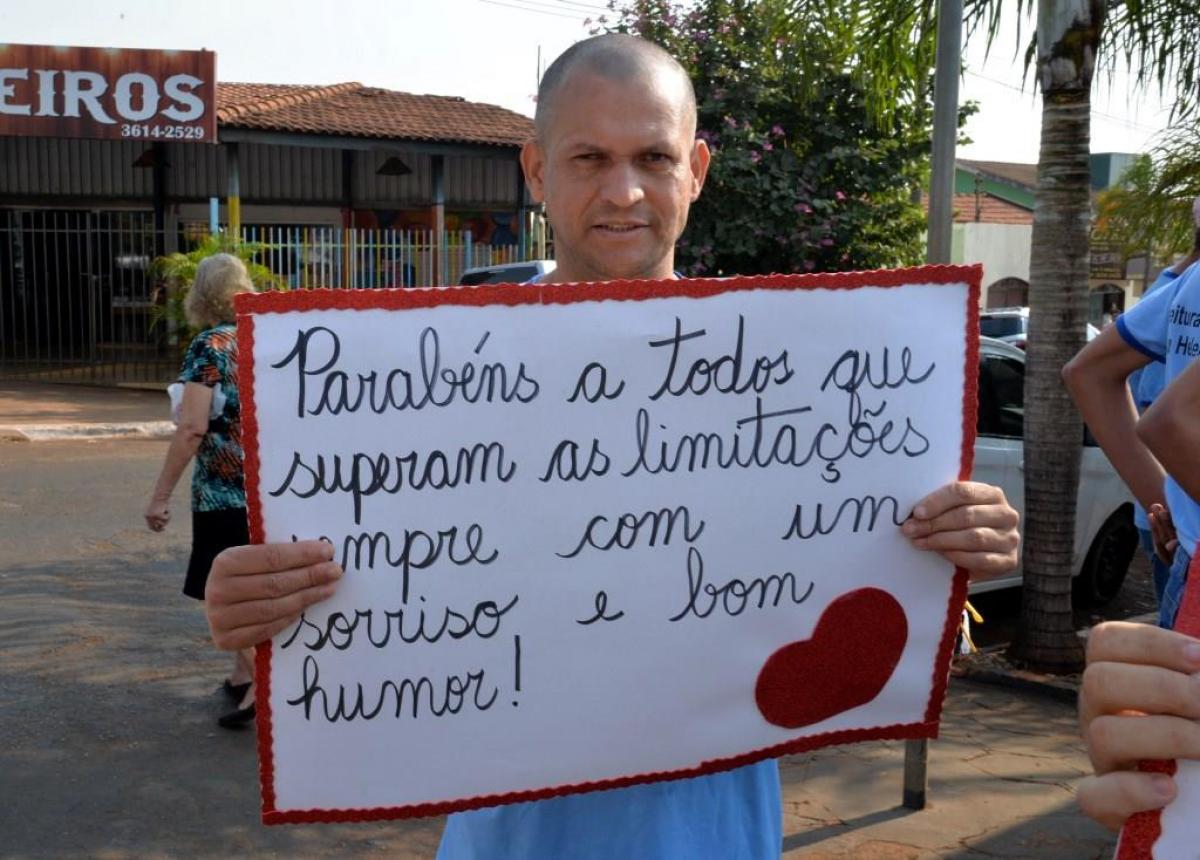 EIROS
3614-2529
Parabéns a todos que
superam as limitações
empre com um
sorriso e bom
humor!
eitura
Hele